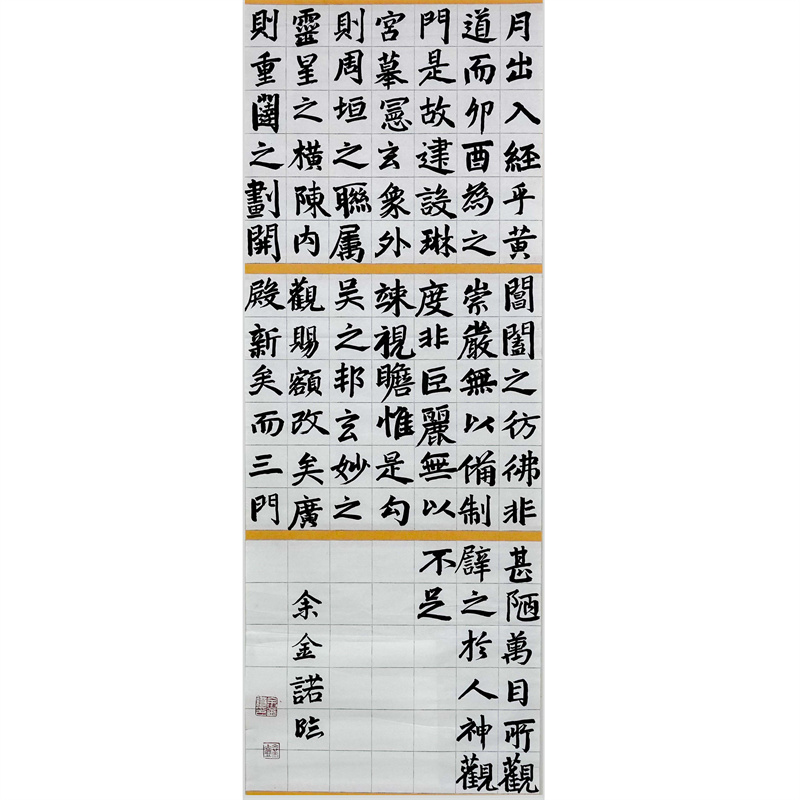 月出入經乎黃
道而卯酉為之
門是故建設琳
宮摹憲玄象外
則周垣之聯属
靈星之橫陳内
則重闥之劃開
閶闔之彷彿非
崇嚴無以備制
度非巨麗無以
竦視瞻惟是勾
吴之邦玄妙之
觀賜額改矣廣
殿新矣而三門
甚陋萬目所觀
辟之於人神觀
不足
余金諾臨